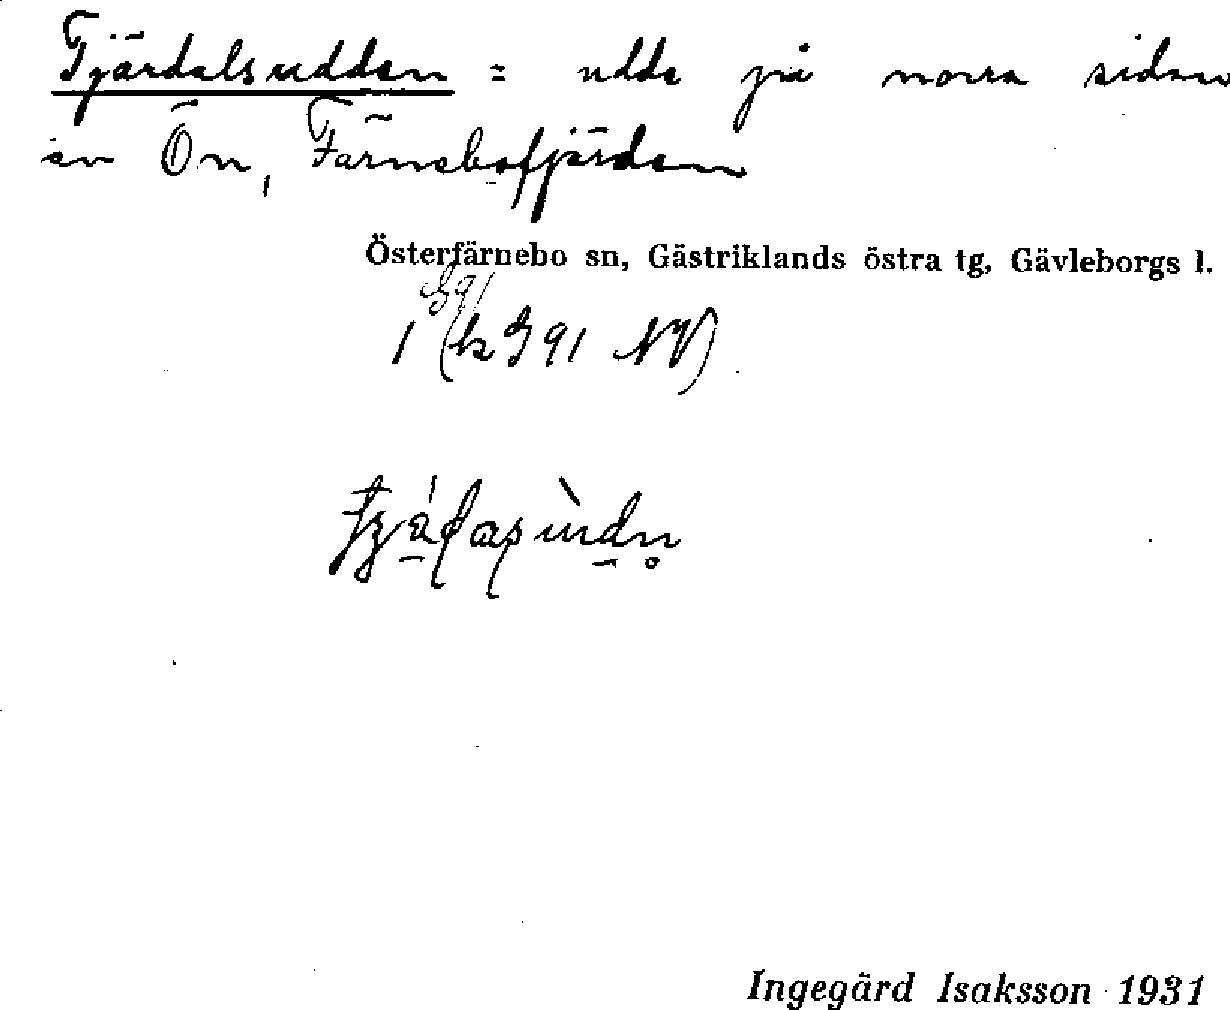 Fjärdalsudden = udde på norra sidan
av Ön, Färnebofjärden
Österfärnebo sn, Gästriklands östra tg, Gävleborgs l.
1 (k G 91 NV)
Ingegärd Isaksson 1931